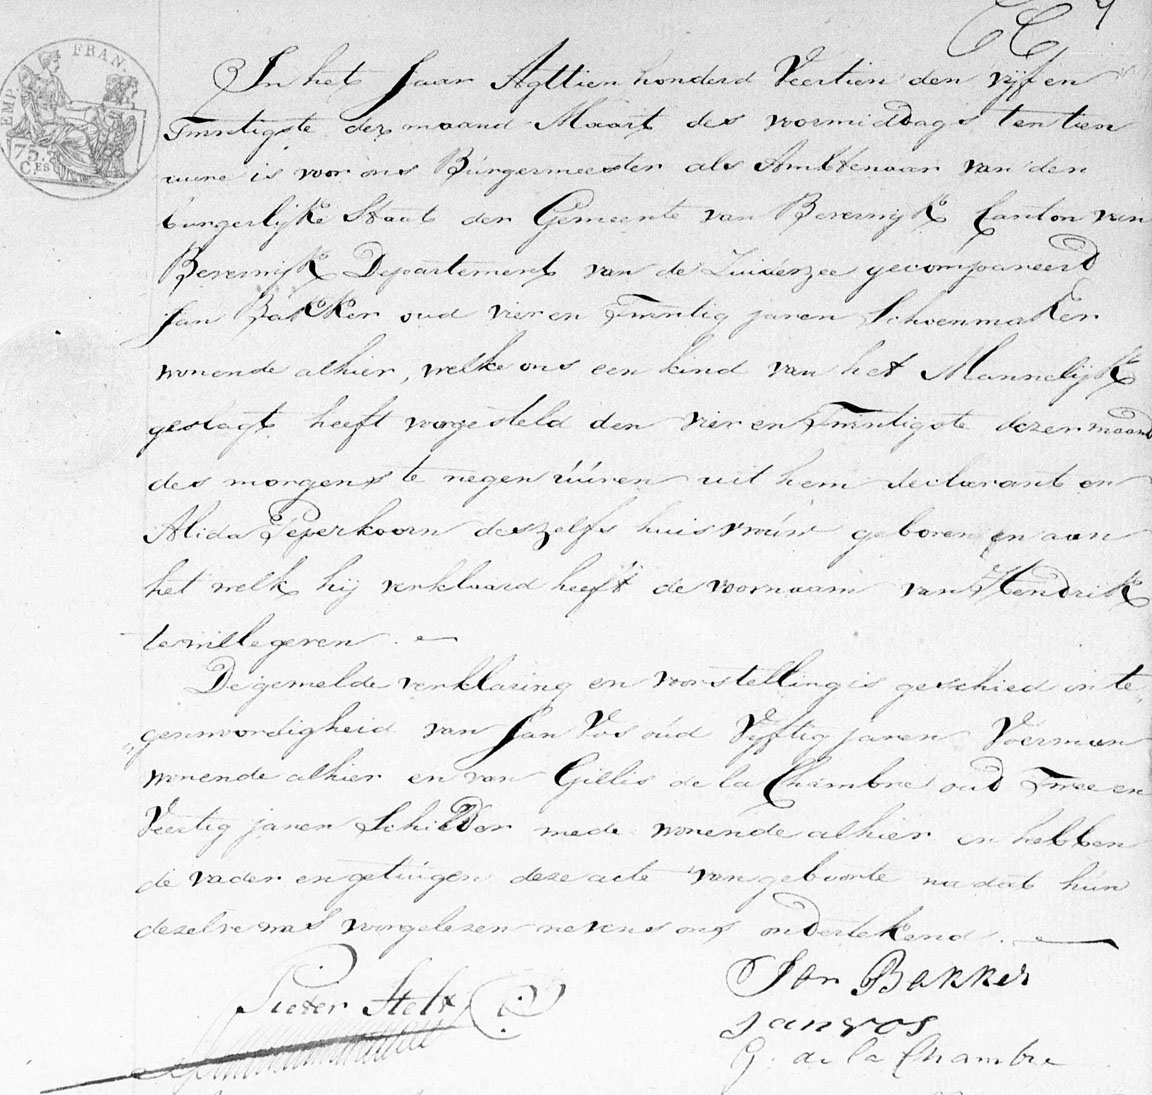 EMP. FRAN.
75. CES
In het Jaar Agttien honderd Veertien den vijf en
Twintigste dezer maand Maart des voormiddags ten tien
uure is voor ons Burgermeester als Ambtenaar van den
burgerlijke Staat der Gemeente van Beverwijk Canton van
Beverwijk Departement van de Zuiderzee gecompareerd
Jan Bakker oud vier en Twintig jaren Schoenmaker
wonende alhier, welke ons een kind van het Mannelijk
geslagt heeft voorgesteld den vier en Twintigste dezer maand
des morgens te negen uuren uit hem declarant en
Alida Peperkoorn deszelfs huisvrouw geboren en aan
het welk hij verklaard heeft de voornaam van Hendrik
te wille geven.
De gemelde verklaring en voorstelling is geschied in te
genwoordigheid van Jan Vos oud Vijftig jaren Voerman
wonende alhier en van Gillis de la Chambre oud Twee en
Veertig jaren Schilder mede wonende alhier en hebben
de vader en getuigen deze acte van geboorte na dat hun
dezelve was voorgelezen nevens ons ondertekend.
Pieter Stelt
Jan Bakker
Jan vos
G. de la Chambre